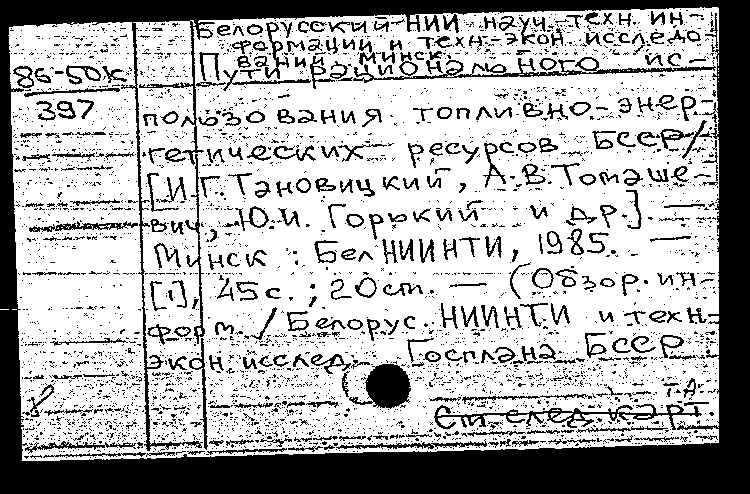 Белорусский НИИ науч.-техн. ин-
формации и техн.-экон. исследо-
ваний, Минск
86-50к
397
Пути рационального ис-
пользования топливно-энер-
гетических ресурсов БССР/
[И.Г. Тановицкий, А.В. Томаше-
вич, Ю.И. Горький и др.]. —
Минск : БелНИИНТИ, 1985. —
[1], 45 с. ; 20 см. — (Обзор. ин-
форм. / Белорус. НИИНТИ и техн.-
экон. исслед. Госплана БССР
См след. карт.